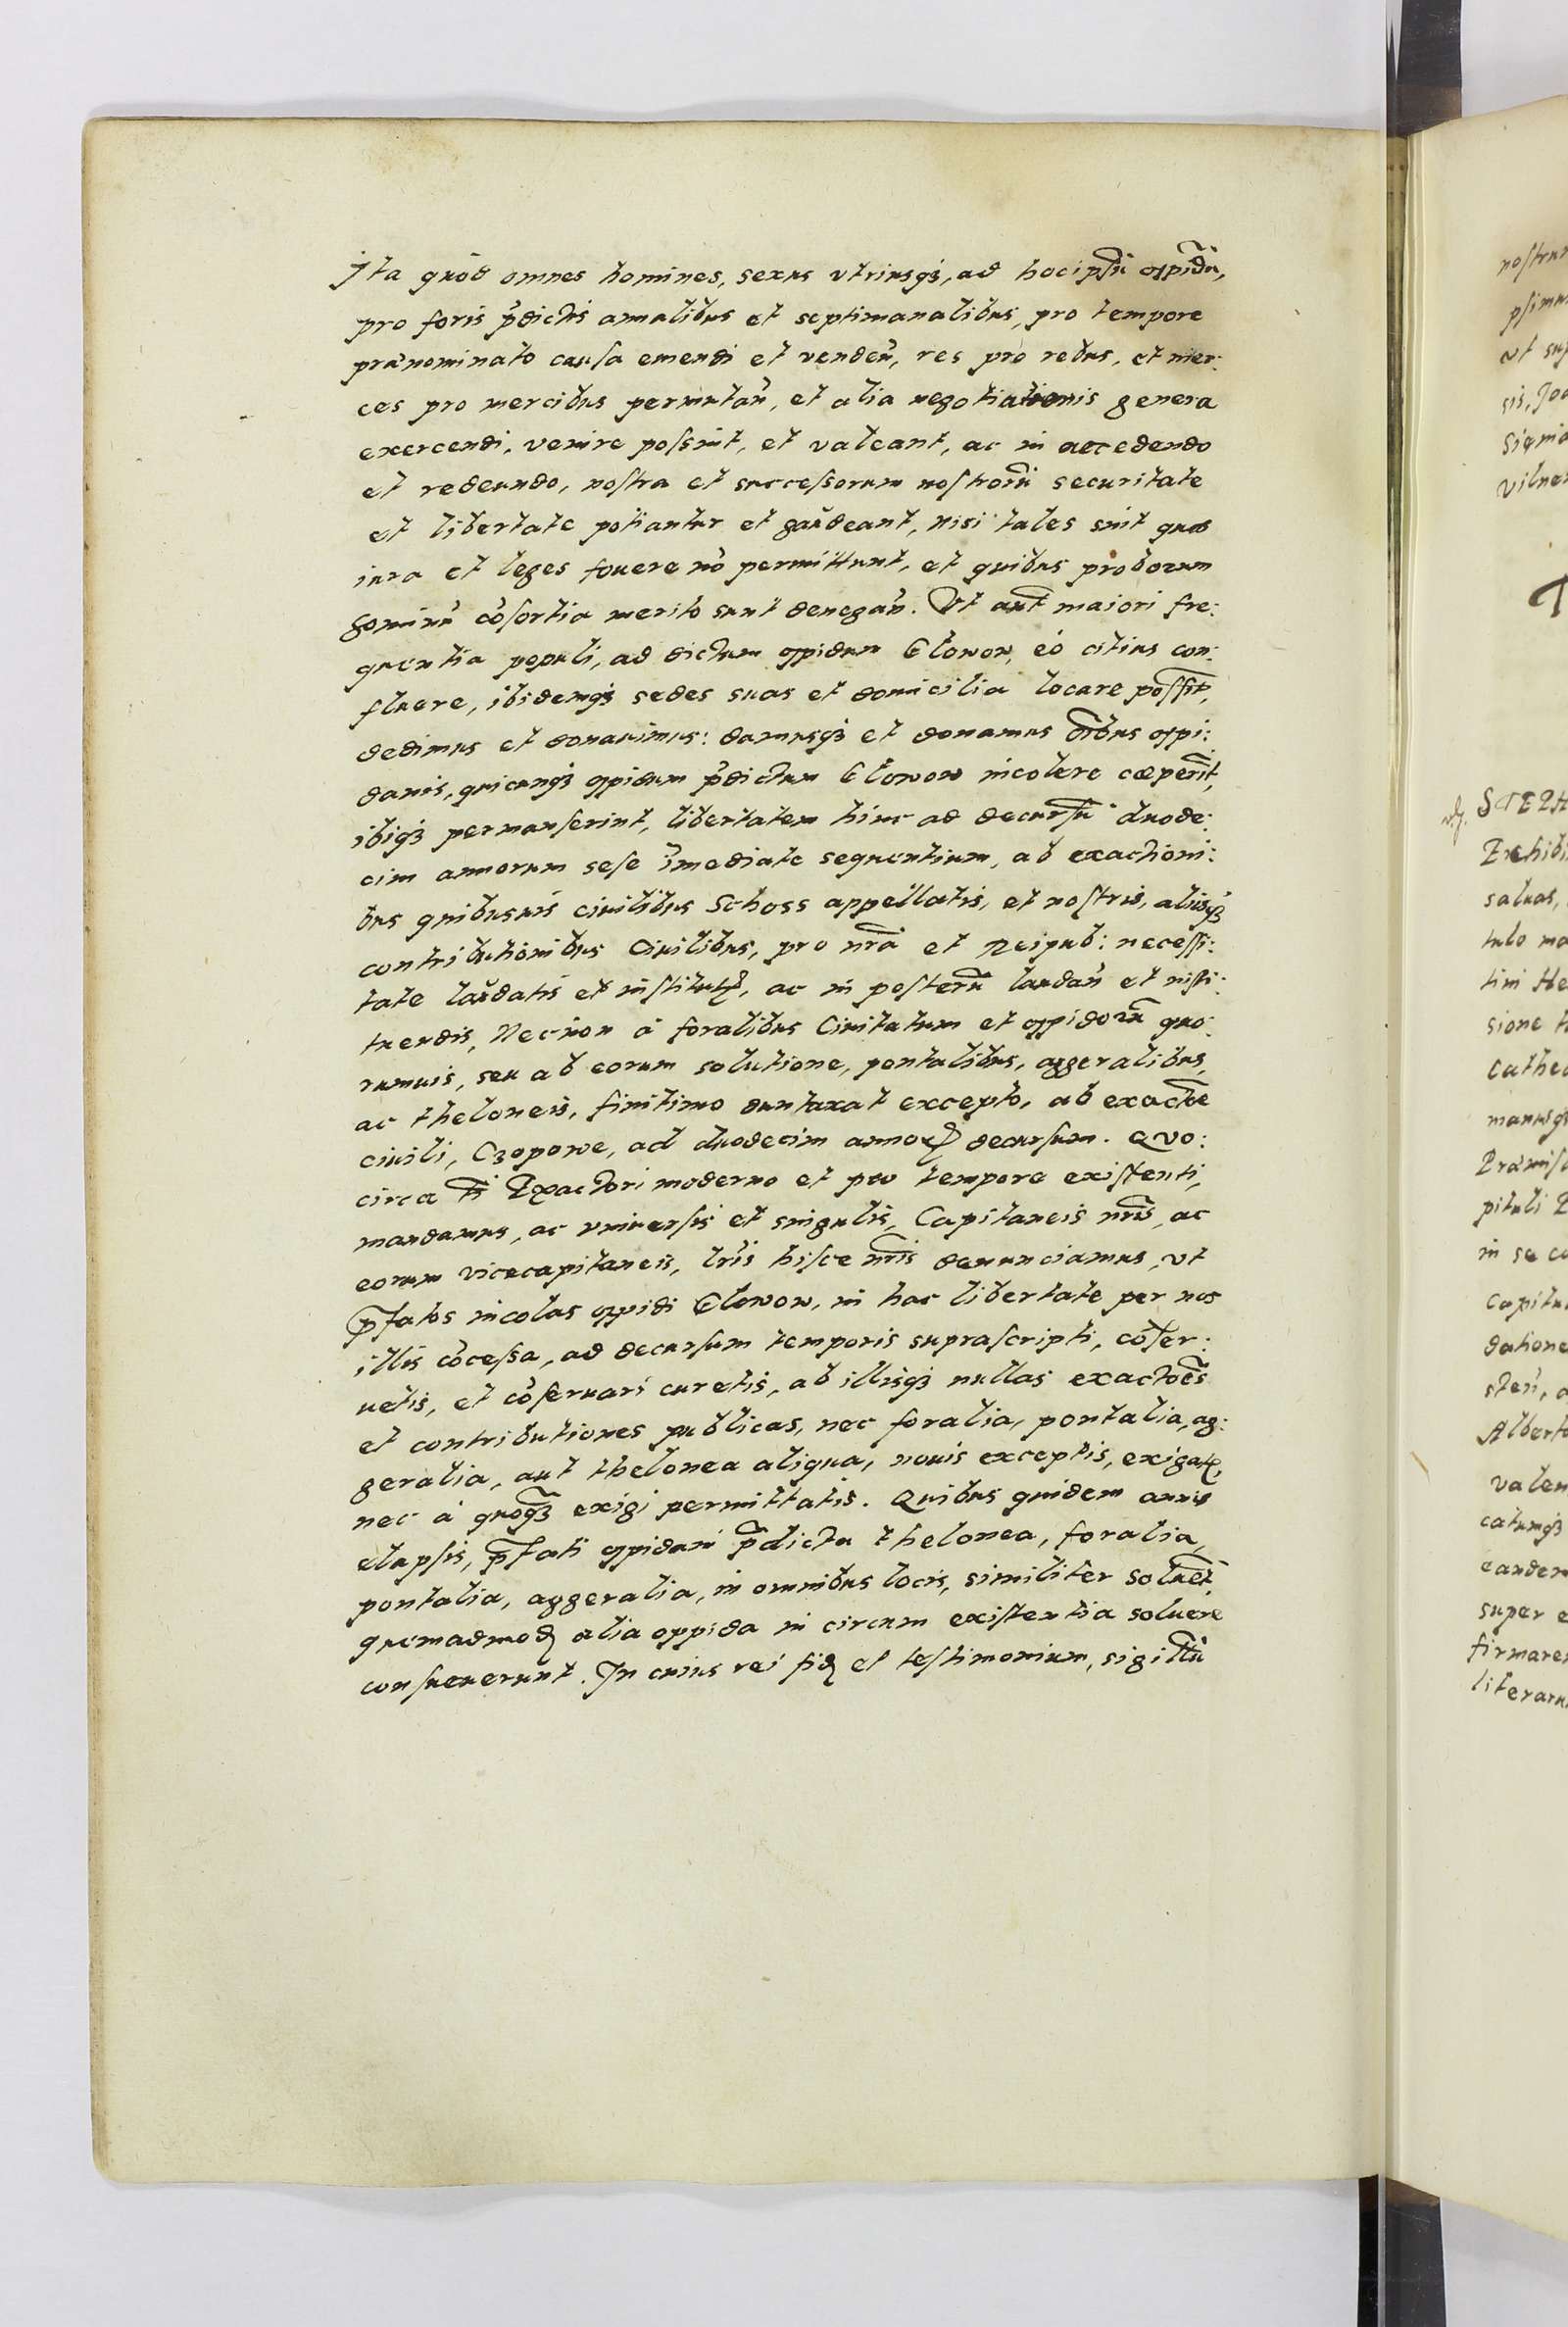 Ita quòd omnes homines, sexus vtriusqꝫ, ad hocipsũ oppidũ,
pro foris p̃dictis annalibus et septimanalibus, pro tempore
prænominato causa emendi et venden̄, res pro rebus, et mer:
ces pro mercibus permutan̄, et alia negotiationis genera
exercendi, venire possint, et valeant, ac in accedendo
et redeundo, nostra et successorum nostrorũ securitate
et libertate potiantur et gaudeant, nisi tales sint quos
iura et leges fouere nō permittunt, et quibus proborum
hominū cōsortia merito sunt denegan̄. Vt aut̃ maiori fre:
quentia populi, ad dictum oppidum Glowow, eò citius con:
fluere, ibidemqꝫ sedes suas et domicilia locare possit,
dedimus et donauimus: damusqꝫ et donamus õibus oppi:
danis, quicunqꝫ oppidum p̃dictum Glowow incolere cœperĩt,
ibiqꝫ permanserint, libertatem hinc ad decursũ duode:
cim annorum sese īmediate sequentium, ab exactioni:
bus quibusuis ciuilibus Schoss appellatis, et nostris, aliisqꝫ
contributionibus Ciuilibus, pro nr̃a et Reipub: necessi:
tate laudatis et institutꝭ, ac in posterũ laudan̄ et insti:
tuendis, Necnon à foralibus Ciuitatum et oppidorũ quo:
rumuis, seu ab eorum solutione, pontalibus, aggeralibus,
ac theloneis, finitimo duntaxat excepto, ab exactõe
ciuili, Czopowe, ad duodecim annoꝝ decursum. Quo:
circa tĩ Exactori moderno et pro tempore existenti,
mandamus, ac vniuersis et singulis, Capitaneis nr̃is, ac
eorum vicecapitaneis, lr̃is hisce nr̃is denunciamus, vt
p̃fatos incolas oppidi Glowow, in hac libertate per nos
illis cōcessa, ad decursum temporis suprascripti, cōser:
uetis, et cōseruari curetis, ab illisqꝫ nullas exactões
et contributiones publicas, nec foralia, pontalia, ag:
geralia, aut thelonea aliqua, nouis exceptis, exigatꝭ,
nec à quoqꝫ exigi permittatis. Quibus quidem annis
elapsis, p̃fati oppidani p̃dicta thelonea, foralia,
pontalia, aggeralia, in omnibus locis, similiter soluẽt,
quemadmoꝺ alia oppida in circum existentia soluere
consueuerunt. In cuius rei fiꝺ et testimonium, sigillũ